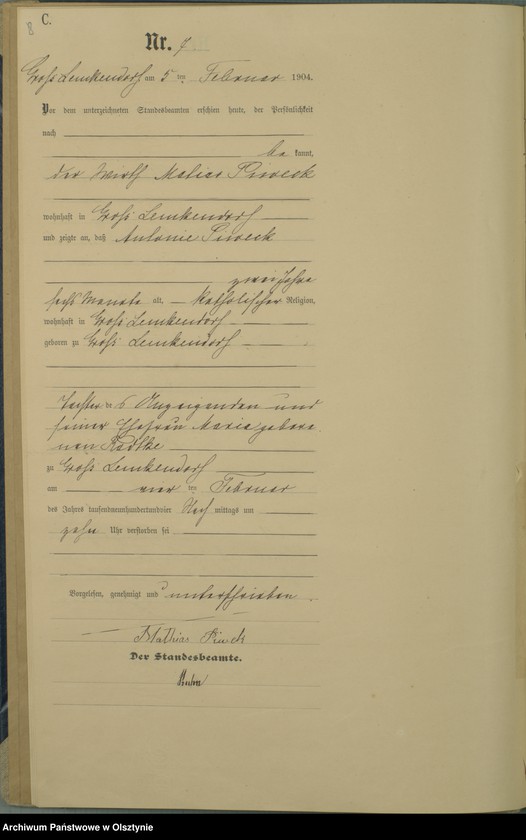 8 C.
Nr. 7
Groß Lemkendorf am 5 ten Februar 1904.
Vor dem unterzeichneten Standesbeamten erschien heute, der Persönlichkeit
nach
be kannt,
der Wirth Piweck
wohnhaft in Groß Lemkendorf
und zeigte an, daß Antonie Piweck
zwei Jahre
sechs Monate alt, katholischer Religion,
wohnhaft in Groß Lemkendorf
geboren zu Groß Lemkendorf
Tochter des Anzeigenden und
seiner Ehefrau Maria gebore
nen Radtke
zu Groß Lemkendorf
am vier ten Februar
des Jahres tausendneunhundertundvier Nach mittags um
zehn Uhr verstorben sei
Vorgelesen, genehmigt und unterschrieben.
Mathias
Der Standesbeamte.
Archiwum Państwowe w Olsztynie